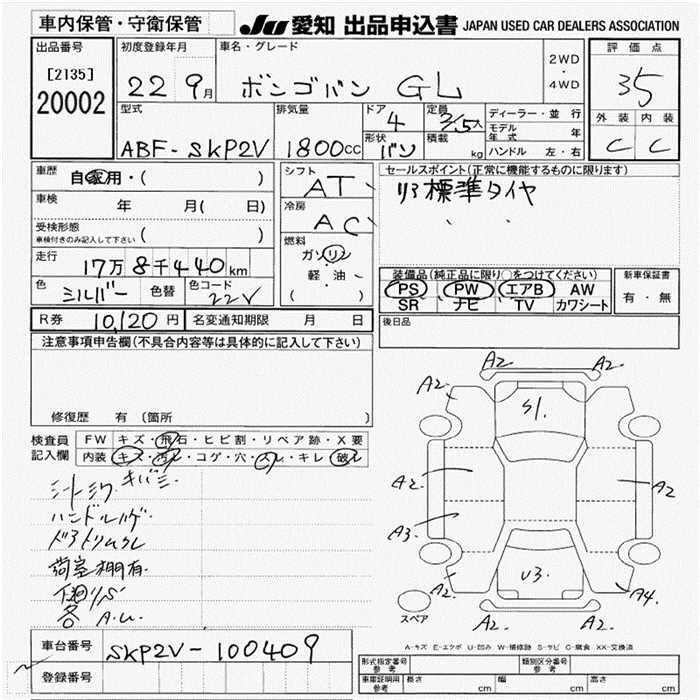 車内保管・守衛保管
JU 愛知 出品申込書 JAPAN USED CAR DEALERS ASSOCIATION
出品番号
[2135]
20002
初度登録年月
22 9月
車名・グレード
ボンゴバン GL
2WD
・
4WD
評価点
35
外装 内装
C C
型式
ABF-SKP2V
排気量
1800cc
ドア
4
形状
バン
定員
3/5人
積載
kg
ディーラー・並行
モデル年式 年
ハンドル 左・右
車歴
自家用・( )
車検
年 月( 日)
受検形態
車検付きのみ記入して下さい ( )
走行
17万8千440km
色
シルバー
色替
色コード
22V
シフト
AT
冷房
AC
燃料
ガソリン
軽・油
( )
セールスポイント(正常に機能するものに限ります)
リヤ標準タイヤ
装備品(純正品に限り○をつけてください)
PS PW エアB AW
SR ナビ TV カワシート
新車保証書
有・無
R券 10,120円 名変通知期限 月 日
後日品
注意事項申告欄(不具合内容等は具体的に記入して下さい)
修復歴 有(箇所 )
検査員
記入欄
FW キズ・飛石・ヒビ割・リペア跡・X要
内装 キズ・汚レ・コゲ・穴・スレ・キレ・破レ
ハンドルハゲ.
荷室棚有.
A.U.
A2. A2.
A2 S1. A2.
A2. A2
A3.
A2. U3. A4.
A2. A2.
スペア
A-キズ E-エクボ U-凹み W-補修跡 S-サビ C-腐食 XX-交換済
車台番号
SKP2V-100409
登録番号
形式指定番号
参考
類別区分番号
参考
車庫証明用
参考
長さ cm 幅 cm 高さ cm